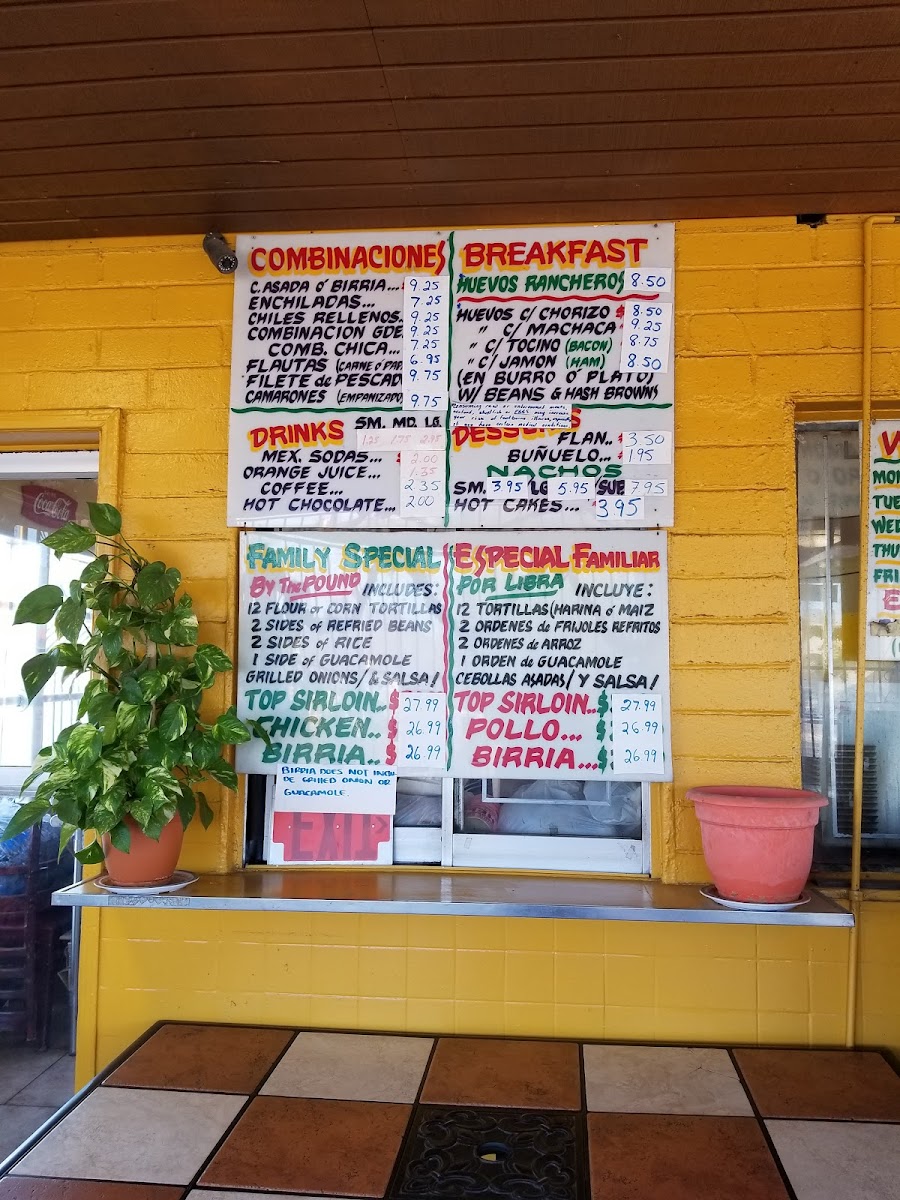 COMBINACIONES
C. ASADA ó BIRRIA... 9.25
ENCHILADAS... 7.25
CHILES RELLENOS.. 9.25
COMBINACION GDE. 9.25
COMB. CHICA... 7.25
FLAUTAS (CARNE ó PAP 6.95
FILETE de PESCAD 9.75
CAMARONES (EMPANIZADO) 9.75
BREAKFAST
HUEVOS RANCHEROS 8.50
HUEVOS C/ CHORIZO $ 8.50
" C/ MACHACA 9.25
" C/ TOCINO (BACON) 8.75
" C/ JAMON (HAM) 8.50
(EN BURRO ó PLATO)
W/ BEANS & HASH BROWNS
DRINKS SM. MD. LG.
1.25 1.75 2.35
MEX. SODAS... 2.00
ORANGE JUICE... 1.35
COFFEE... 2.35
HOT CHOCOLATE... 2.00
DESSERTS
FLAN.. $3.50
BUÑUELO... 1.95
NACHOS
SM. 3.95 LG 5.95 SUP 7.95
HOT CAKES... 3.95
FAMILY SPECIAL
By The POUND INCLUDES:
12 FLOUR or CORN TORTILLAS
2 SIDES of REFRIED BEANS
2 SIDES of RICE
1 SIDE of GUACAMOLE
GRILLED ONIONS/ & SALSA!
TOP SIRLOIN.. $ 27.99
CHICKEN.. $ 26.99
BIRRIA.. $ 26.99
ESPECIAL FAMILIAR
POR LIBRA INCLUYE:
12 TORTILLAS (HARINA ó MAIZ
2 ORDENES de FRIJOLES REFRITOS
2 ORDENES de ARROZ
1 ORDEN de GUACAMOLE
CEBOLLAS ASADAS/ Y SALSA!
TOP SIRLOIN.. $ 27.99
POLLO... $ 26.99
BIRRIA... $ 26.99
BIRRIA DOES NOT INCLU
DE GRILLED ONION OR
GUACAMOLE.
EXIT
Coca-Cola
MON
TUE
WED
THU
FRI